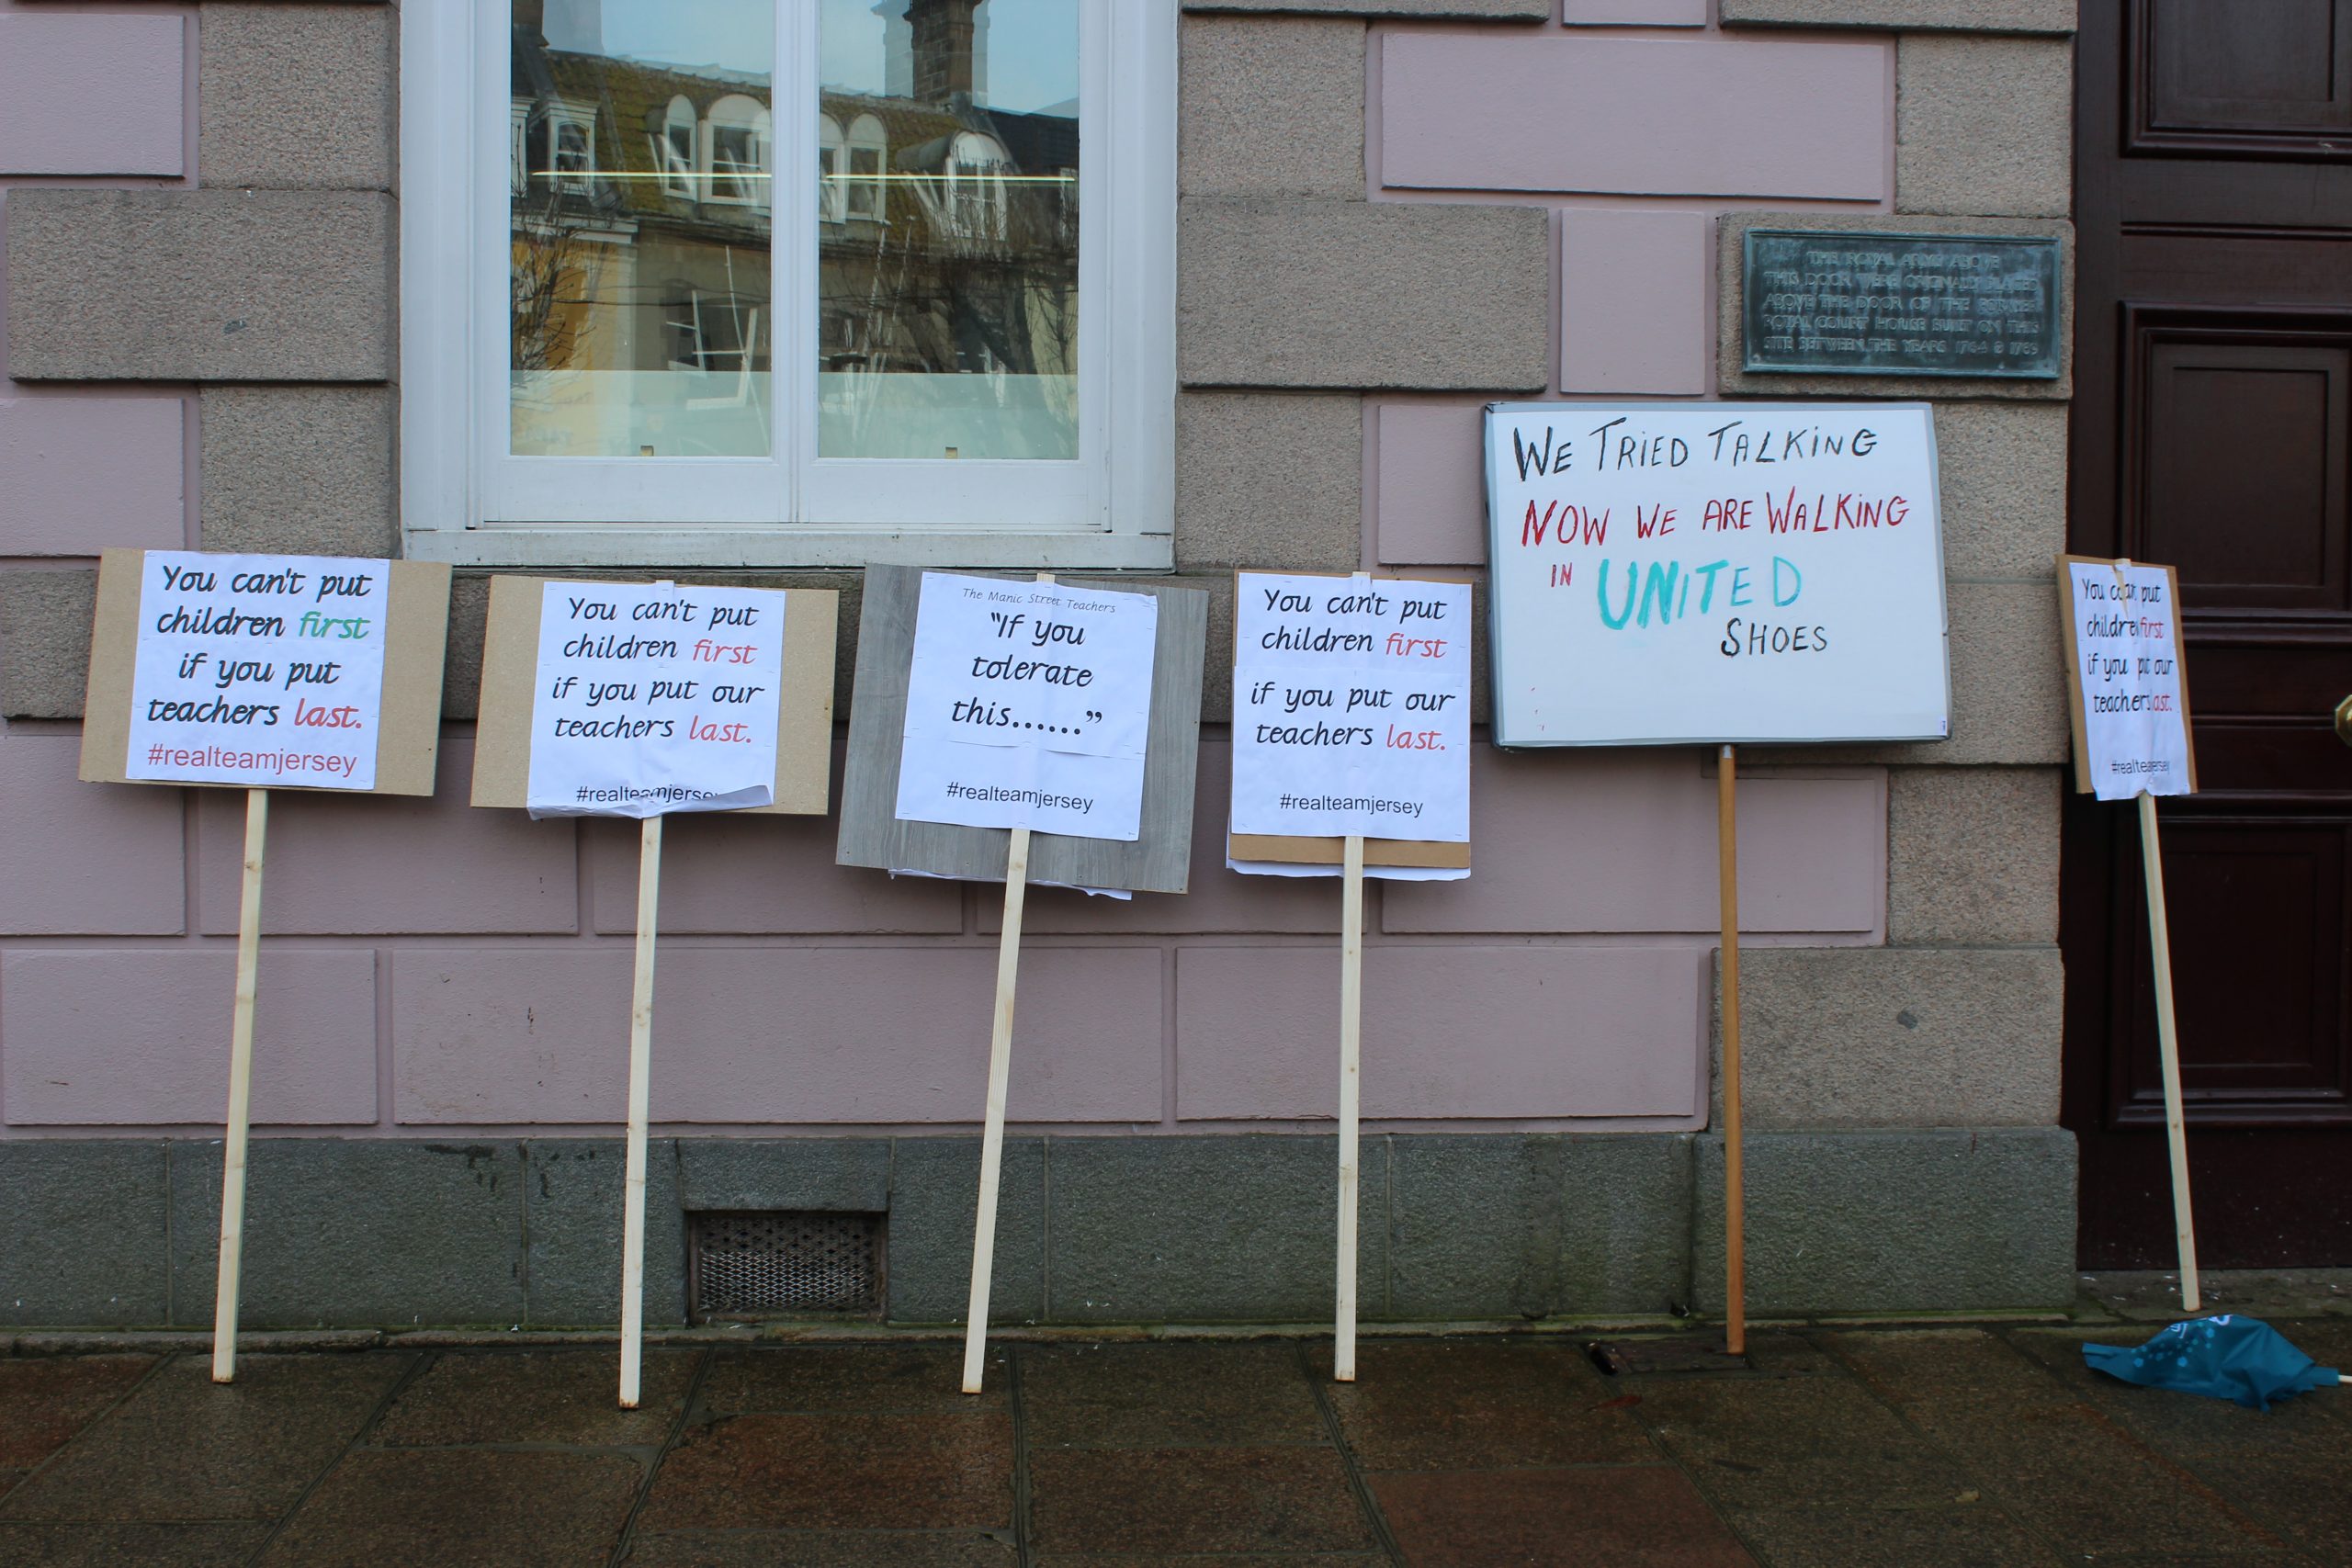 You can't put
children first
if you put
teachers last.
#realteamjersey
You can't put
children first
if you put our
teachers last.
#realteamjersey
The Manic Street Teachers
"If you
tolerate
this......"
#realteamjersey
You can't put
children first
if you put our
teachers last.
#realteamjersey
WE TRIED TALKING
NOW WE ARE WALKING
IN UNITED
SHOES
THE ROYAL ARMS ABOVE
THIS DOOR WERE ORIGINALLY PLACED
ABOVE THE DOOR OF THE FORMER
ROYAL COURT HOUSE BUILT ON THIS
SITE BETWEEN THE YEARS 1764 & 1769
You can't put
children first
if you put our
teachers last.
#realteamjersey